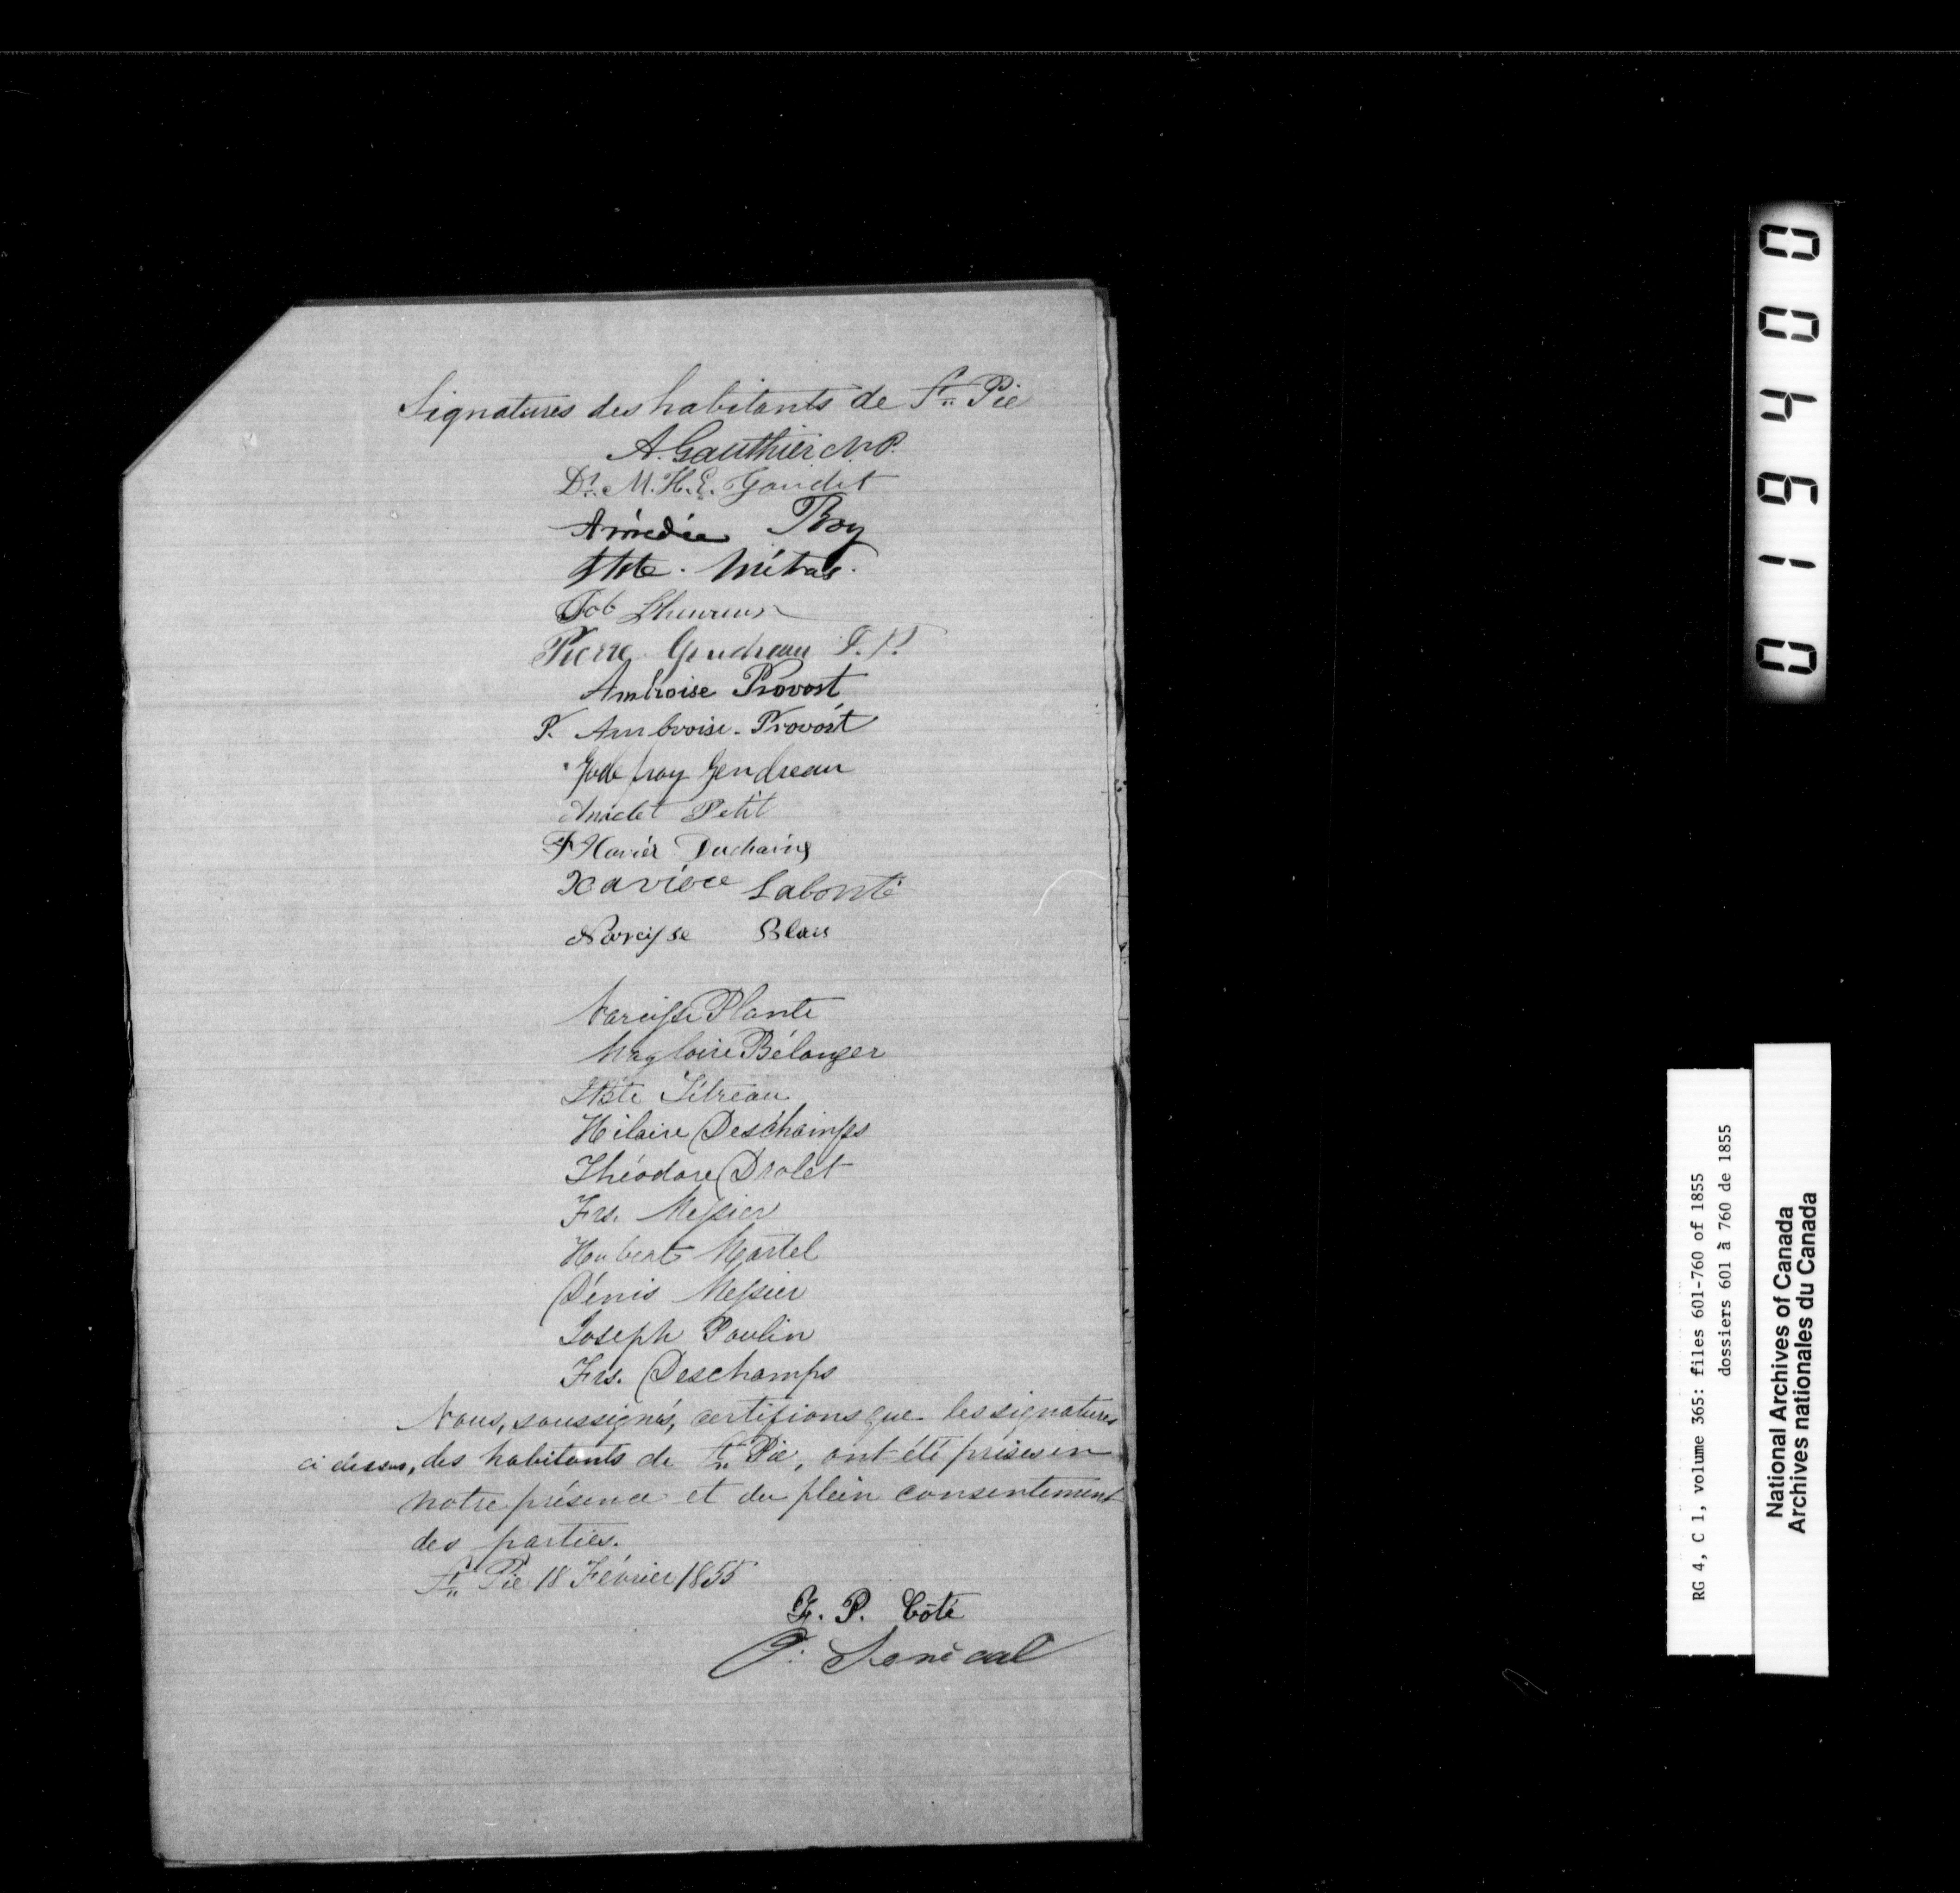 Signatures des habitants de St. Pie
A. Gauthier N.P.
Dr. M. H. E. Goudit
Amédée Roy
JBte. Métras.
Job Lheureux
Pierre Gendreau J.P.
Ambroise Provost
P. Ambroise. Provost
Godefroy Gendreau
Anaclet Petit
F Xavier Duchaine
Xaviere Labonté
Narcisse Blais
Narcisse Plante
Magloire Bélanger
JBte Tétreau
Hilaire Deschamps
Théodore Drolet
Frs. Messier
Houbert Martel
Dénis Messier
Joseph Poulin
Frs. Deschamps
Nous, soussignés, certifions que les signatures
ci dessus, des habitants de St. Pie, ont été prises en
notre présence et du plein consentement
des parties.
St. Pie 18 Février 1855
F. P. Côté
Senécal
019400
RG 4, C 1, volume 365: files 601-760 of 1855
dossiers 601 à 760 de 1855
National Archives of Canada
Archives nationales du Canada